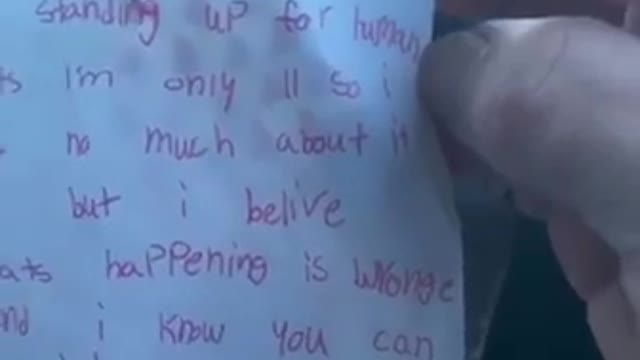 standing up for human
ts I'm only 11 so i
no much about it
but i belive
ats happening is wronge
nd i know you can